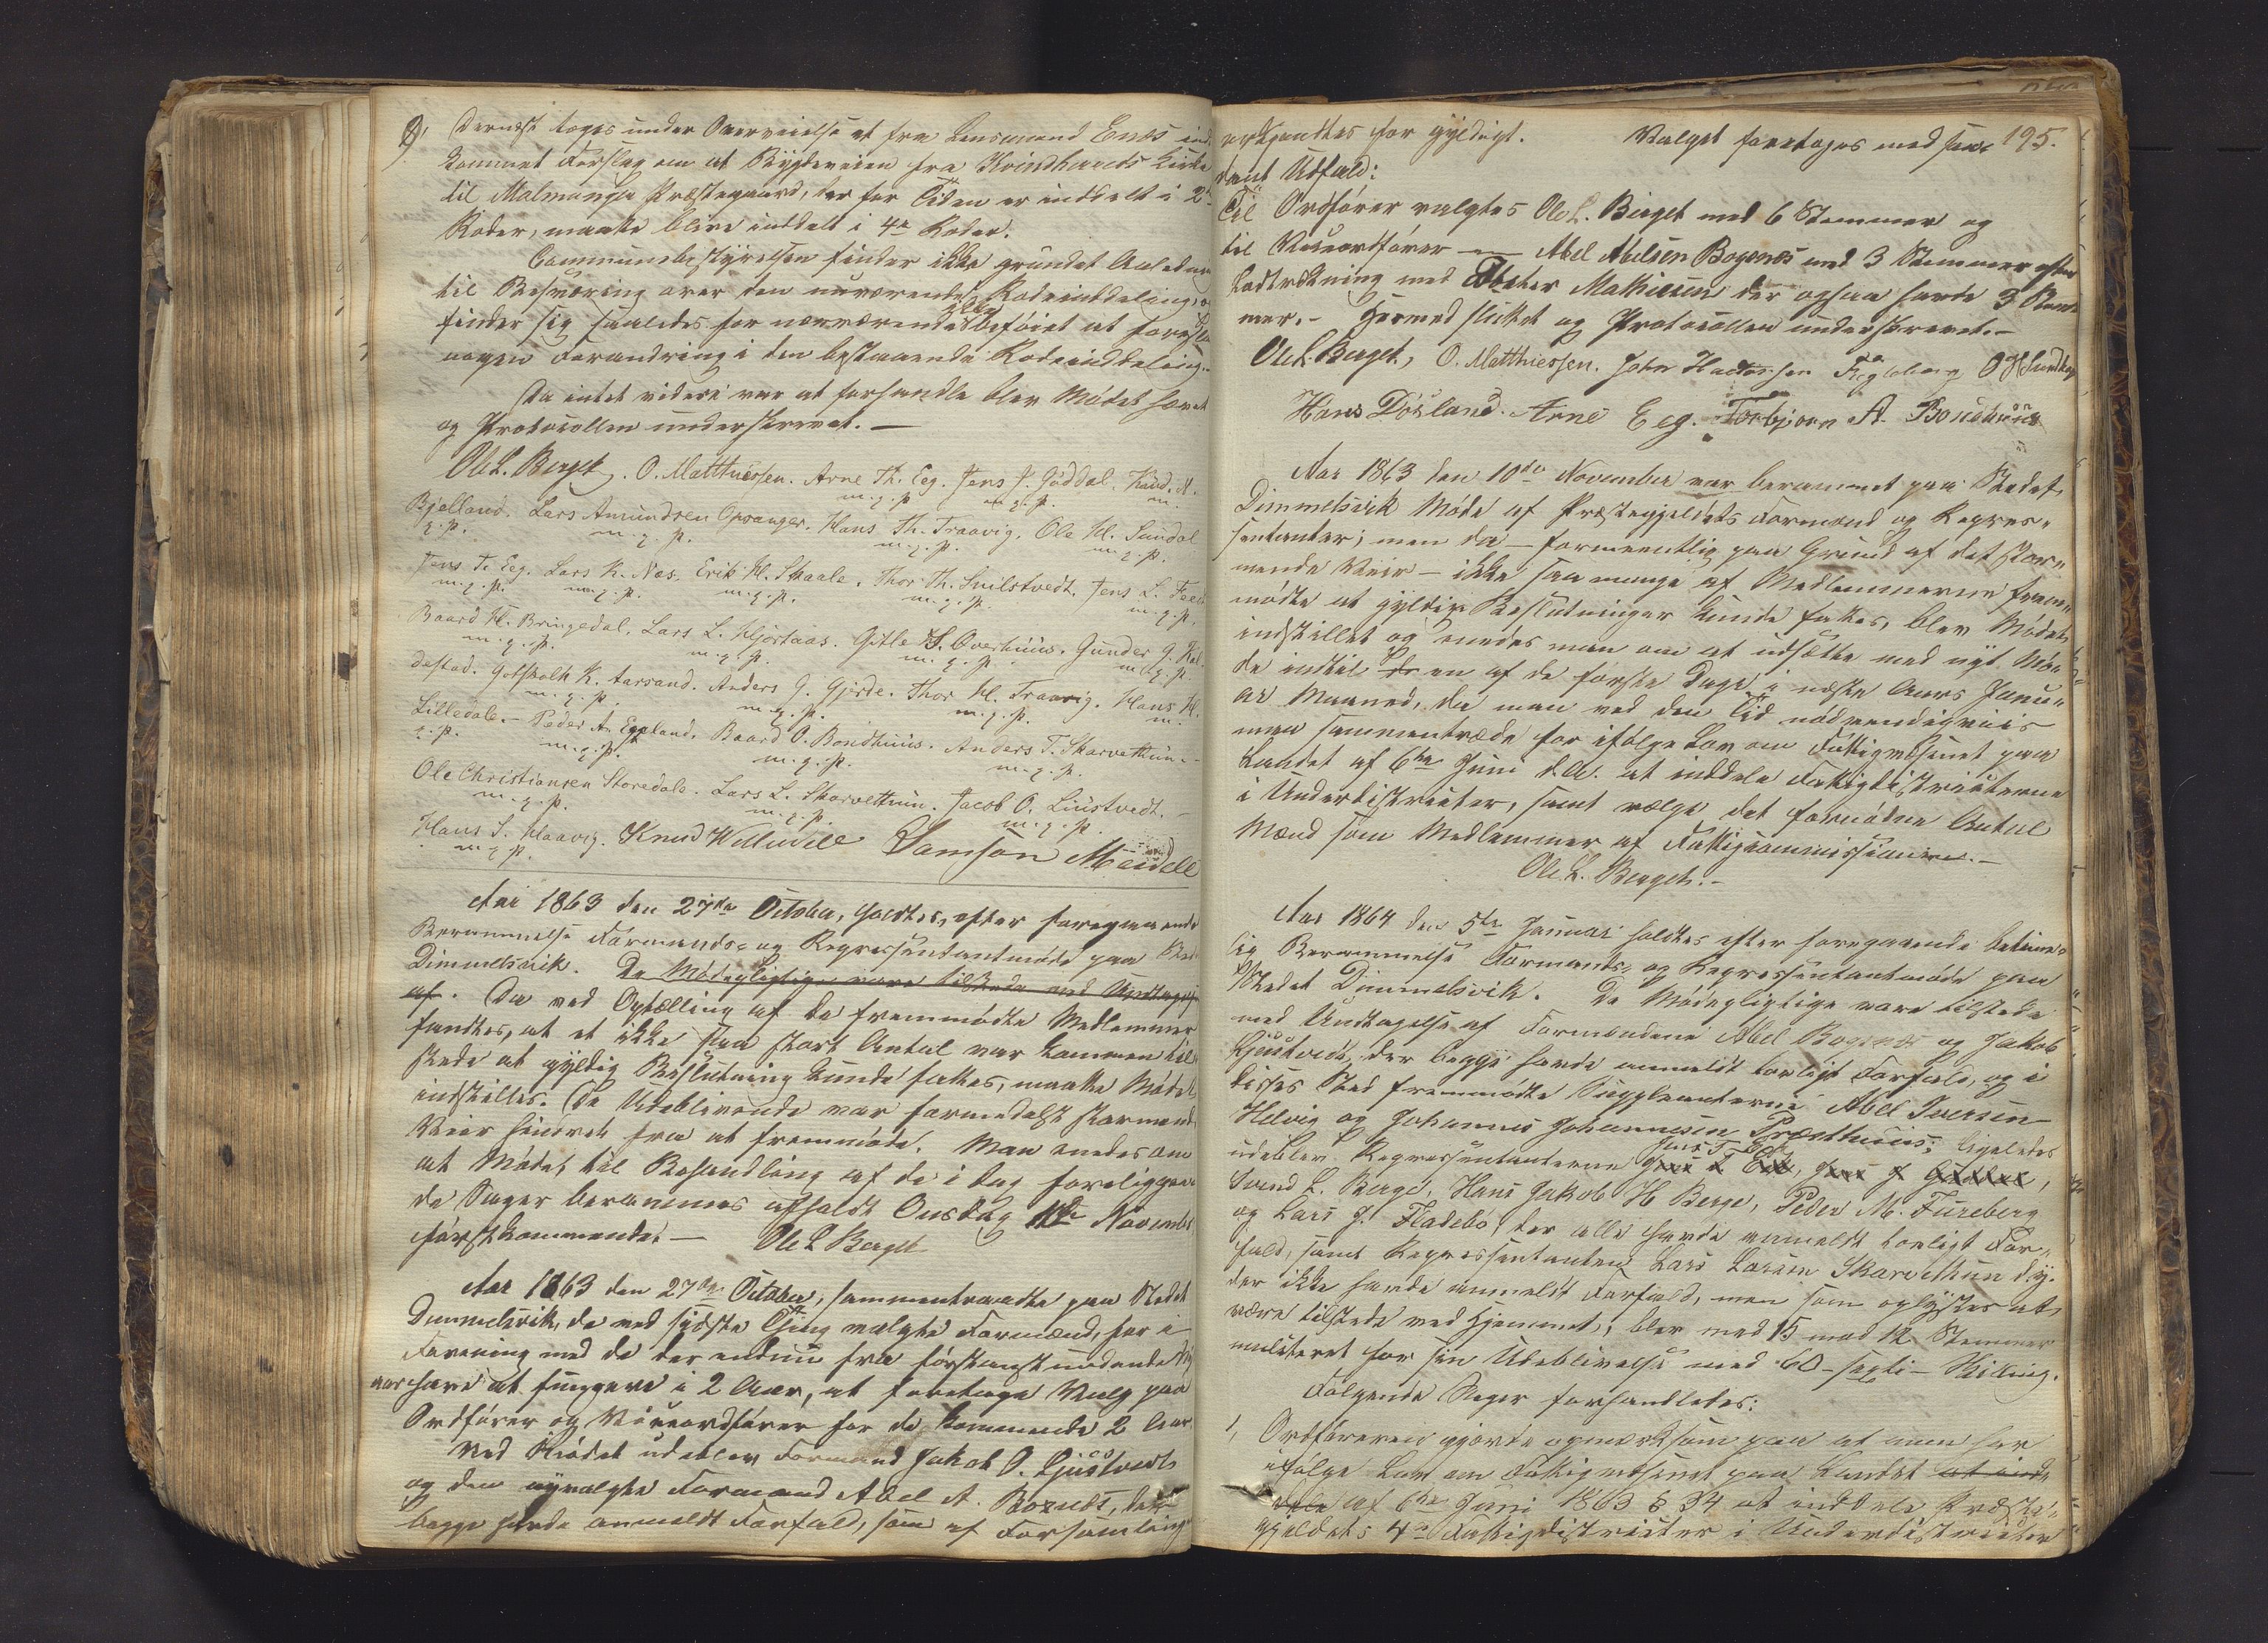 9, Dernæst toges under Overveielse et fra Lensmand Enes ind-
kommet Forslag om at Bygdeveien fra Kvindherreds Kirke
til Malmangers Præstegaard, der for Tiden er inddelt i 2de
Roder, maatte blive inddelt i 4re Roder.
Communebestyrelsen finder ikke grundet Anledning
til Besværing over den nuværende Rodeinddeling, og
finder sig saaledes for nærværende ikke beføiet at foreslaa
nogen Forandring i den bestaaende Rodeinddeling.
Da intet videre var at forhandle blev Mødet hævet
og Protocollen underskrevet. —
Ole L. Berget. O. Matthiessen. Arne Th. Eeg. Jens J. Guddal. Knud. A.
m. g. p. m. g. p. m.
Bjelland. Lars Amundsen Opsanger. Hans Th. Traavig. Ole H. Sundal
g. p. m. g. p. m. g. p. m. g. p.
Jens T. Eeg. Lars K. Næs. Erik H. Skaale. Thor Th. Snilstvedt. Jens L. Feed
m. g. p. m. g. p. m. g. p. m. g. p. m. g. p.
Baard H. Bringedal. Lars L. Hjortaas. Gitle S. Overhuus. Gunder G. Hal-
m. g. p. m. g. p. m. g. p. m. g. p.
destad. Gotskalk K. Aarsand. Anders J. Gjerde. Thor H. Traavig. Hans H.
m. g. p. m. g. p. m. g. p. m.
Lilledale. — Peder A. Egeland. Baard O. Bondhuus. Anders T. Skarvethun. —
g. p. m. g. p. m. g. p. m. g. p.
Ole Christiansen Storedale. Lars L. Skarvethun. Jacob O. Liustvedt. —
m. g. p. m. g. p. m. g. p.
Hans S. Haavig. Knud Samson Meidell
m. g. p.
Aar 1863 den 27de October, holdtes, efter foregaaende
Berammelse Formands- og Repræsentantmøde paa Stedet
Dimmelsvik. De Mødepligtige vare tilstede med Undtagelse
af. Da ved Optælling af de fremmødte Medlemmer
fandtes, at et ikke saa stort Antal var kommen til-
stede at gyldig Beslutning kunde fattes, maatte Mødet
indstilles. De Udeblivende var formedelst stormende
Veir hindret fra at fremmøde. Man enedes om
at Mødet til Behandling af de i Dag foreliggen-
de Sager berammes afholdt Onsdag November
førstkommende. — Ole L Berget
Aar 1863 den 27de October, sammentraadte paa Stedet
Dimmelsvik, de ved sidste Thing valgte Formænd, for i
Forening med de der endnu fra
have at fungere i 2 Aar, at foretage Valg paa
Ordfører og Viceordfører for de kommende 2 Aar.
Ved Mødet udeblev Formand Jakob O. Ljustvedt
og den nyvalgte Formand Abel A. Bogenes, der
begge havde anmeldt Forfald, som af Forsamlingen
195.
erkjendtes for gyldigt. Valget foretoges med saa-
dant Udfald:
Til Ordfører valgtes Ole L. Berget med 6 Stemmer og
til Viceordfører — Abel Abelsen Bogenes med 3 Stemmer efter
Lodtrækning med Matthiesen der ogsaa havde 3 Stem-
mer. — Hermed sluttet og Protocollen underskrevet. —
Ole L. Berget, O. Matthiessen. John O H Sundal
Hans Døsland. Arne Eeg. Torbjørn A. Bondhuus
Aar 1863 den 10de November var berammet paa Stedet
Dimmelsvik Møde af Præstegjeldets Formænd og Repræ-
sentanter; men da — formeentlig paa Grund af det stor-
mende Veir — ikke saa mange af Medlemmerne frem-
mødte at gyldige Beslutninger kunde fattes, blev Mødet
indstillet og enedes man om at udsætte med nyt Mø-
de indtil de en af de første Dage i næste Aars Janu-
ar Maaned, da man ved den Tid nødvendigviis
maa sammentræde for ifølge Lov om Fattigvæsenet paa
Landet af 6te Juni d. A. at inddele Fattigdistricterne
i Underdistricter, samt vælge det fornødne Antal
Mænd som Medlemmer af Fattigcommissionerne. —
Ole L. Berget. —
Aar 1864 den 5te Januar holdtes efter foregaaende betime-
lig Berammelse Formands- og Repræsentantmøde paa
Stedet Dimmelsvik. De Mødepligtige vare tilstede
med Undtagelse af Formændene Abel Bogenes og Jakob
Ljustvedt, der begge havde anmeldt lovligt Forfald, og i
disses Sted fremmødte Suppleanterne Abel Iversen
Helvig og Johannes Johannesen Præsthuus; ligeledes
udeblev Repræsentanterne Jens T Eeg, Jens J Guddal,
Svend L. Berge, Hans Jakob H Berge, Peder M. Fureberg
og Lars J. Fladebø, der alle havde anmeldt lovligt For-
fald, samt Repræsentanten Lars Larsen Skarvethun d.y.
der ikke havde anmeldt Forfald, men som oplystes at
være tilstede ved Hjemmet; blev med 15 mod 12 Stemmer
mulcteret for sin Udeblivelse med 60 — sexti — Skilling.
Følgende Sager forhandledes:
1, Ordføreren gjorde opmærksom paa at man har
ifølge Lov om Fattigvæsenet paa Landet at ind-
dele af 6te Juni 1863 § 34 at inddele Præste-
gjeldets 4re Fattigdistricter i Underdistricter